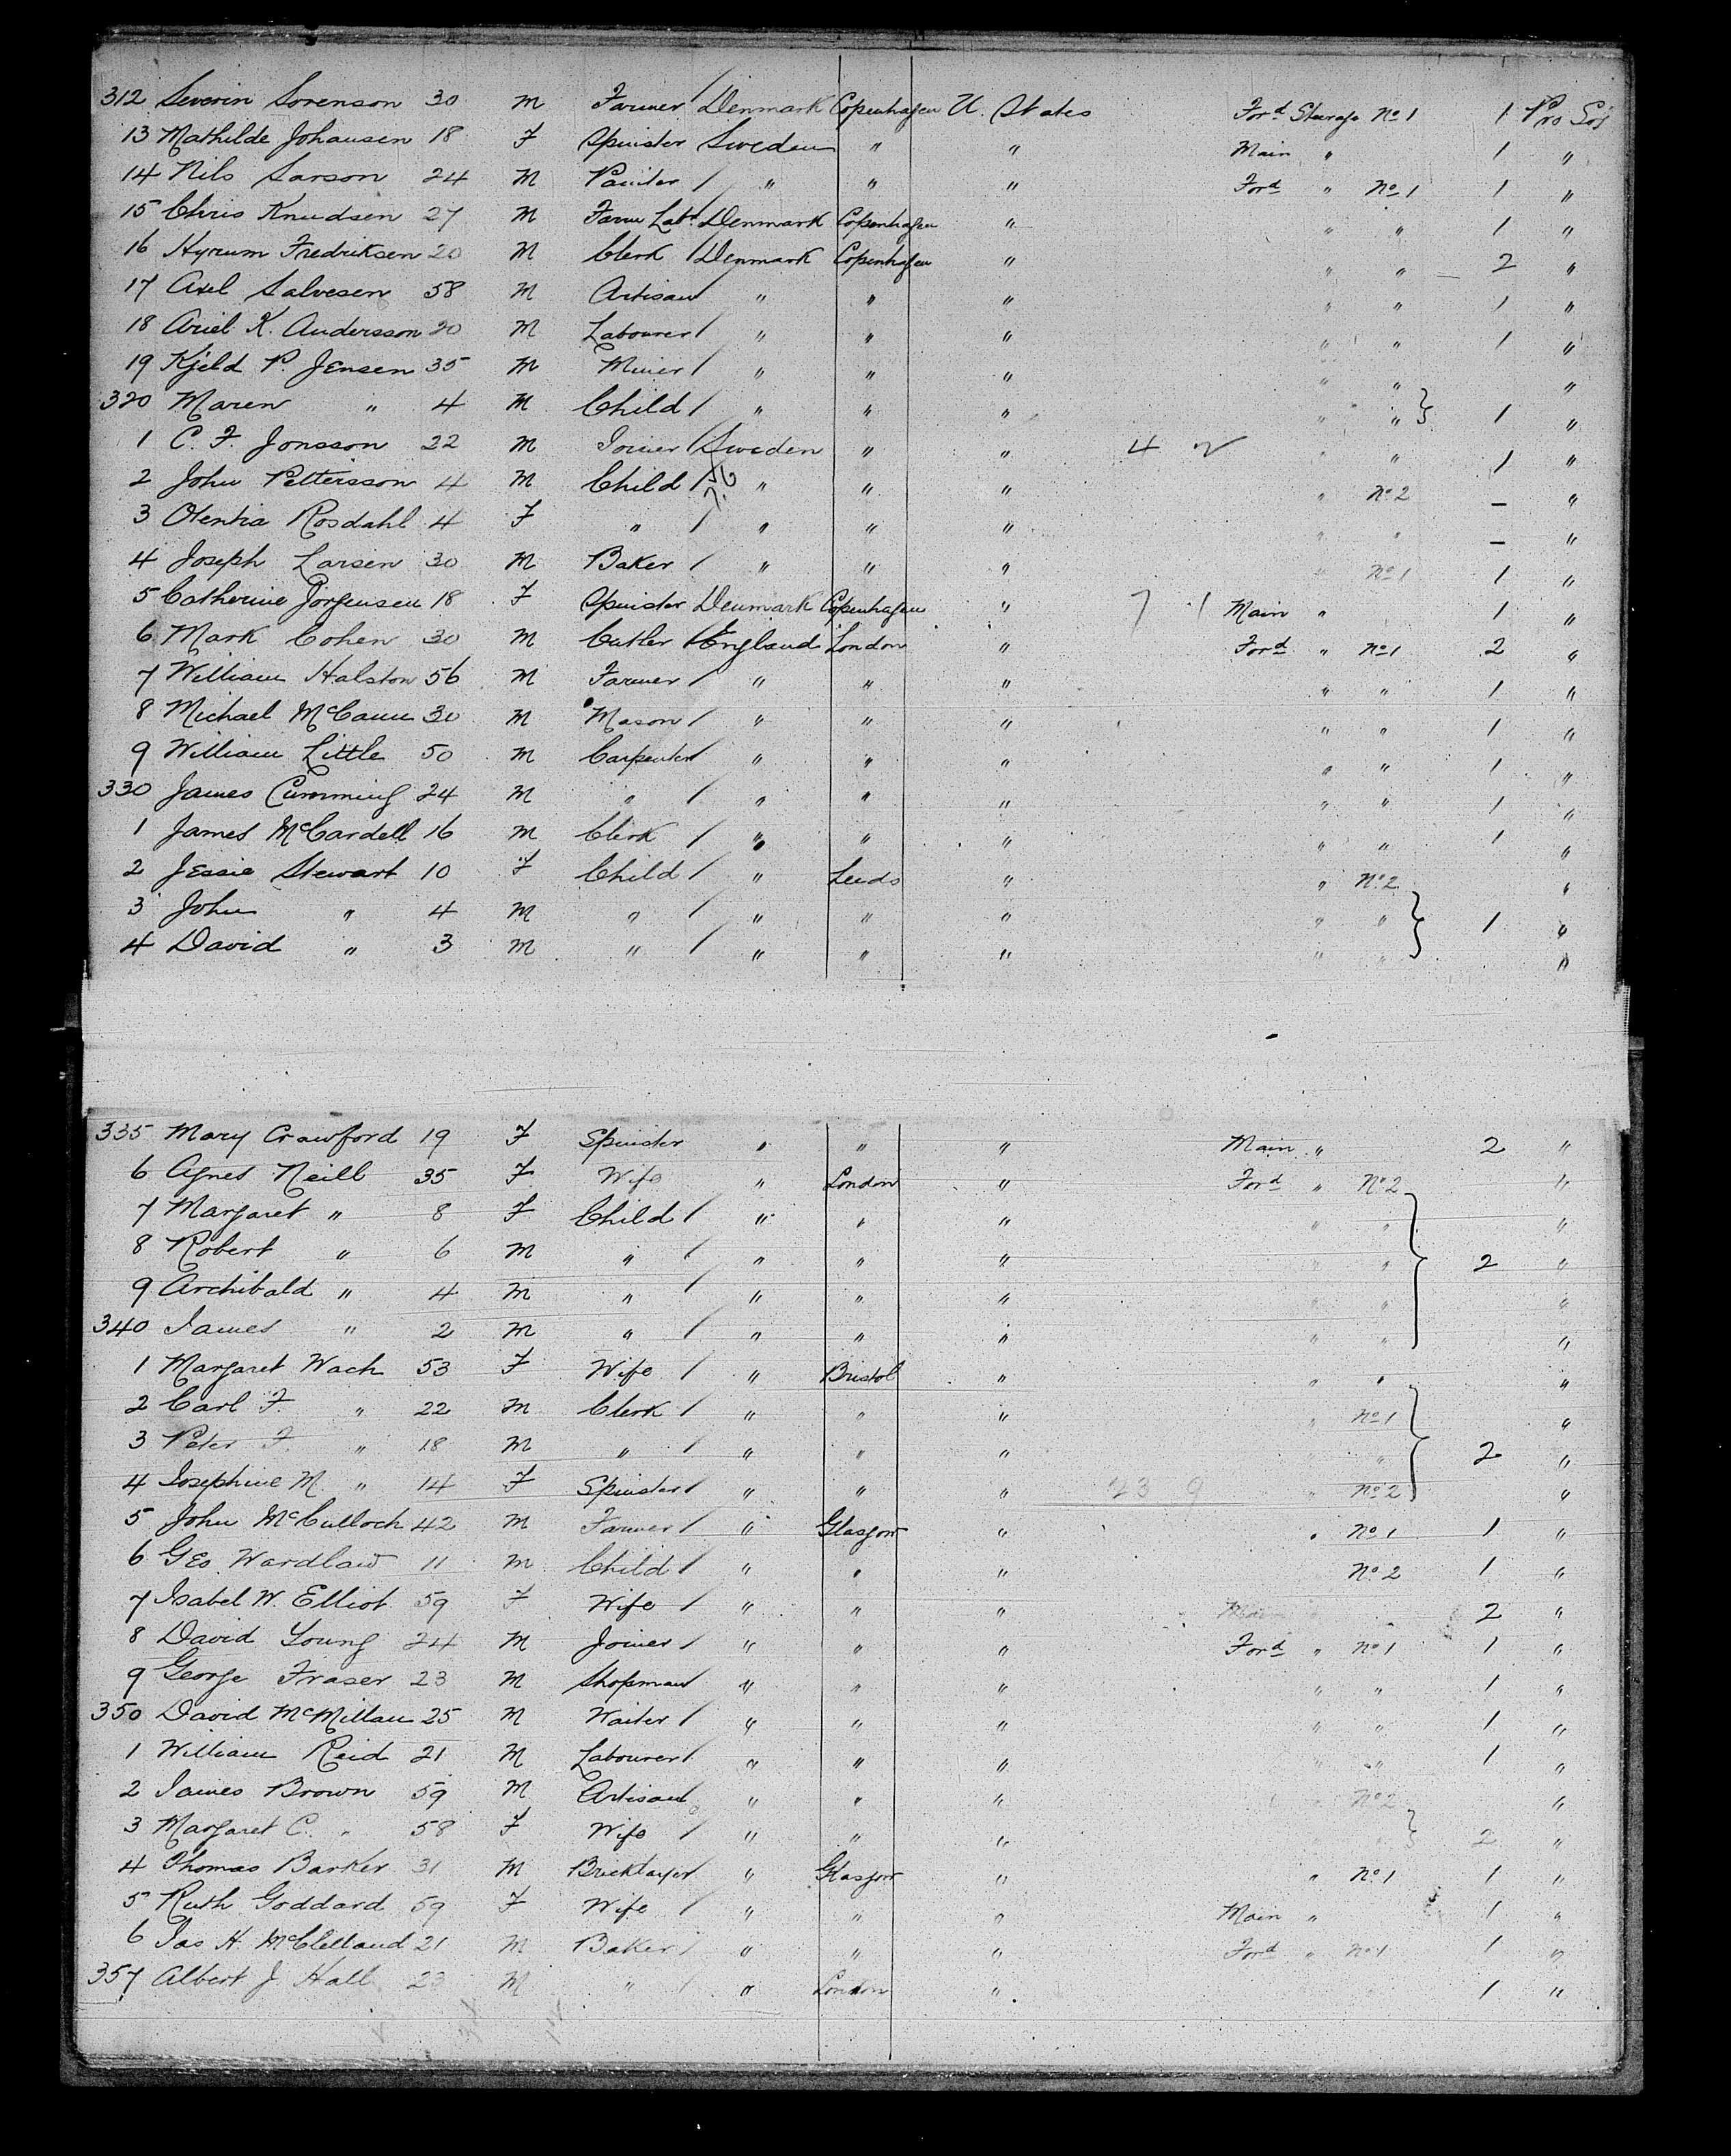 312 Severin Sorenson 30 M Farmer / Denmark Copenhagen U. States Ford Steerage No 1 1 Pro Soj
13 Mathilde Johansen 18 F Spinster Sweden " " Main " 1 "
14 Nils Larson 24 M Painter / " " " Ford " No 1 1 "
15 Chris Knudsen 27 M Farm Labr. Denmark Copenhagen " " " 1 "
16 Hyrum Fredriksen 20 M Clerk / Denmark Copenhagen " " " 2 "
17 Axel Salvesen 58 M Artisan / " " " " " 1 "
18 Ariel K. Andersson 20 M Labourer / " " " " " 1 "
19 Kjeld P. Jensen 35 M Miner / " " " " " "
320 Maren " 4 M Child / " " " " " } 1 "
1 C. F. Jonsson 22 M Joiner / Sweden " " 4 2 " " 1 "
2 John Pettersson 4 M Child / " " " " No 2 – "
3 Olentia Rosdahl 4 F " / " " " " " – "
4 Joseph Larsen 30 M Baker / " " " " No 1 1 "
5 Catherine Jorgensen 18 F Spinster Denmark Copenhagen " 7 1 Main " 1 "
6 Mark Cohen 30 M Cutler / England London " Ford " No 1 2 "
7 William Halston 56 M Farmer / " " " " " 1 "
8 Michael McCann 30 M Mason / " " " " " 1 "
9 William Little 50 M Carpenter / " " " " " 1 "
330 James Cumming 24 M " / " " " " " 1 "
1 James McCardell 16 M Clerk / " " " " " 1 "
2 Jessie Stewart 10 F Child / " Leeds " " No 2 "
3 John " 4 M " / " " " " " } 1 "
4 David " 3 M " / " " " " " "
335 Mary Crawford 19 F Spinster " " " Main " 2 "
6 Agnes Neill 35 F Wife " London " Ford " No 2 "
7 Margaret " 8 F Child / " " " " " "
8 Robert " 6 M " / " " " " " } 2 "
9 Archibald " 4 M " / " " " " " "
340 James " 2 M " / " " " " " "
1 Margaret Wach 53 F Wife / " Bristol " " " "
2 Carl F. " 22 M Clerk / " " " " No 1 "
3 Peter F. " 18 M " / " " " " " } 2 "
4 Josephine M. " 14 F Spinster / " " " 23 9 " No 2 "
5 John McCulloch 42 M Farmer / " Glasgow " " No 1 1 "
6 Geo Wardlaw 11 M Child / " " " No 2 1 "
7 Isabel W. Elliot 59 F Wife / " " " Main 2 "
8 David Young 24 M Joiner / " " " Ford " No 1 1 "
9 George Fraser 23 M Shopman " " " " " 1 "
350 David McMillan 25 M Waiter / " " " " " 1 "
1 William Reid 21 M Labourer / " " " " " 1 "
2 James Brown 59 M Artisan " " " " No 2 "
3 Margaret C. " 58 F Wife / " " " } 2 "
4 Thomas Barker 31 M Bricklayer " Glasgow " " No 1 1 "
5 Ruth Goddard 59 F Wife / " " " Main " 1 "
6 Jas H. McClelland 21 M Baker / " " " Ford " No 1 1 "
357 Albert J. Hall 23 M " / " London " 1 "